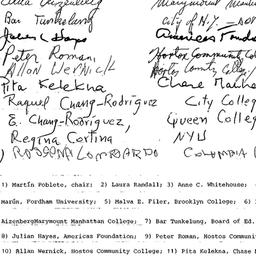 Bar Tunkelang City of N.Y.
Americas Founda
Peter Roman Hostos Community Coll
Allan Wernick Hostos Comty College
Pita Kelekna Chase Manha
Raquel Chang-Rodríguez City College
E. Chang-Rodríguez, Queen College
Regina Cortina NYU
Lombardo Columbia
1) Martín Poblete, chair; 2) Laura Randall; 3) Anne C. Whitehouse;
Fordham University; 5) Malva E. Filer, Brooklyn College; 6)
Marymount Manhattan College; 7) Bar Tunkelung, Board of Ed.
8) Julian Hayes, Americas Foundation; 9) Peter Roman, Hostos Communit
10) Allan Wernick, Hostos Community College; 11) Pita Kelekna, Chase M